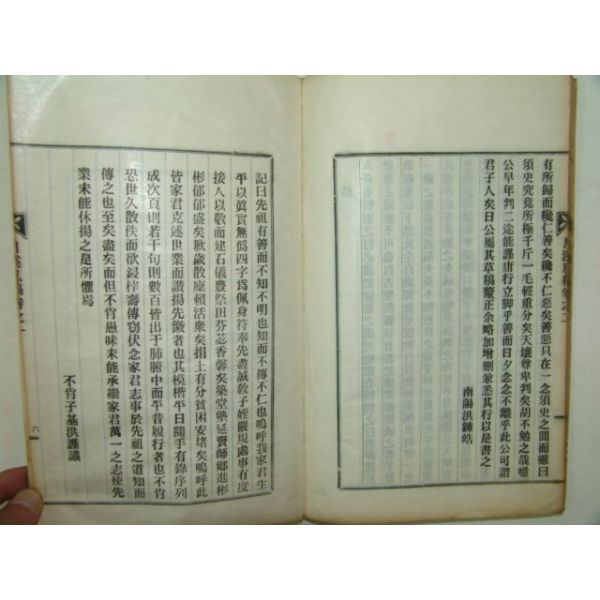 有所歸而纔仁善矣纔不仁惡矣善惡只在一念須臾之間而雖曰
須臾究竟所極千斤一毛輕重分矣天壤尊卑判矣胡不勉之哉噫
公早年判二途能謹庸行立脚乎善而日夕念念不離乎此公可謂
君子人矣日公屬其草稿釐正余略加增刪兼悉其行以是書之
南陽洪鍾皓
記曰先祖有善而不知不明也知而不傳不仁也嗚呼我家君生
平以眞實無僞四字爲佩身符奉先盡誠敎子姪嚴規處事有度
接人以敬而建石儀豊祭田芬苾香馨矣築堂塾延賢師鄉進彬
彬郁郁盛矣歉歲散廩賴活衆矣捐土有分貧困安堵矣嗚呼此
皆家君克述世業而諧揚先徽者也其模楷平日隨手有錄序列
成次頁則若干句則數百皆出于肺腑中而平昔履行者也不肖
恐世久散佚而欲鋟梓壽傳竊伏念家君志事於先祖之道知而
傳之也至矣盡矣而但不肖愚味未能承繼家君萬一之志使先
業未能休揚之是所懼焉
不肖子基洪謹識
六